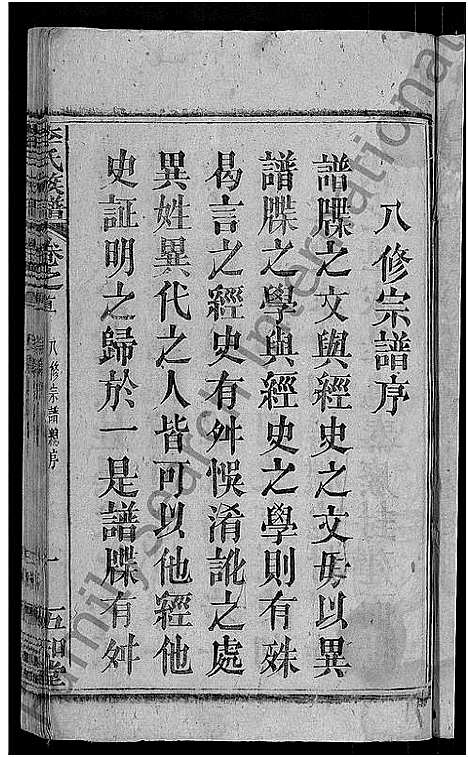 八修宗譜序
譜牒之文與經史之文毋以異
譜牒之學與經史之學則有殊
曷言之經史有舛悞淆訛之處
異姓異代之人皆可以他經他
史証明之歸於一是譜牒有舛
李氏族譜
卷之首
八修宗譜總序
一
五知堂
FamilySearch International